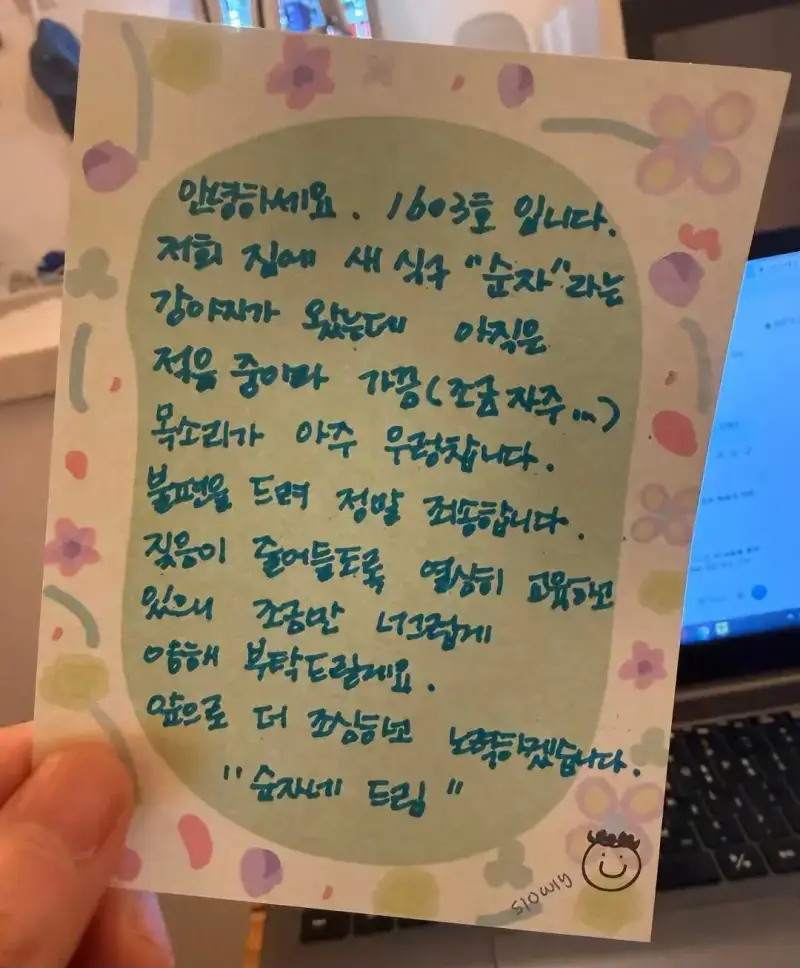 안녕하세요. 1603호 입니다.
저희 집에 새 식구 "순자"라는
강아지가 왔는데 아직은
적응 중이라 가끔(조금 자주...)
목소리가 아주 우렁찹니다.
불편을 드려 정말 죄송합니다.
짖음이 줄어들도록 열심히 교육하고
있으니 조금만 너그럽게
양해 부탁드릴게요.
앞으로 더 조심하고 노력하겠습니다.
"순자네 드림"
slowly